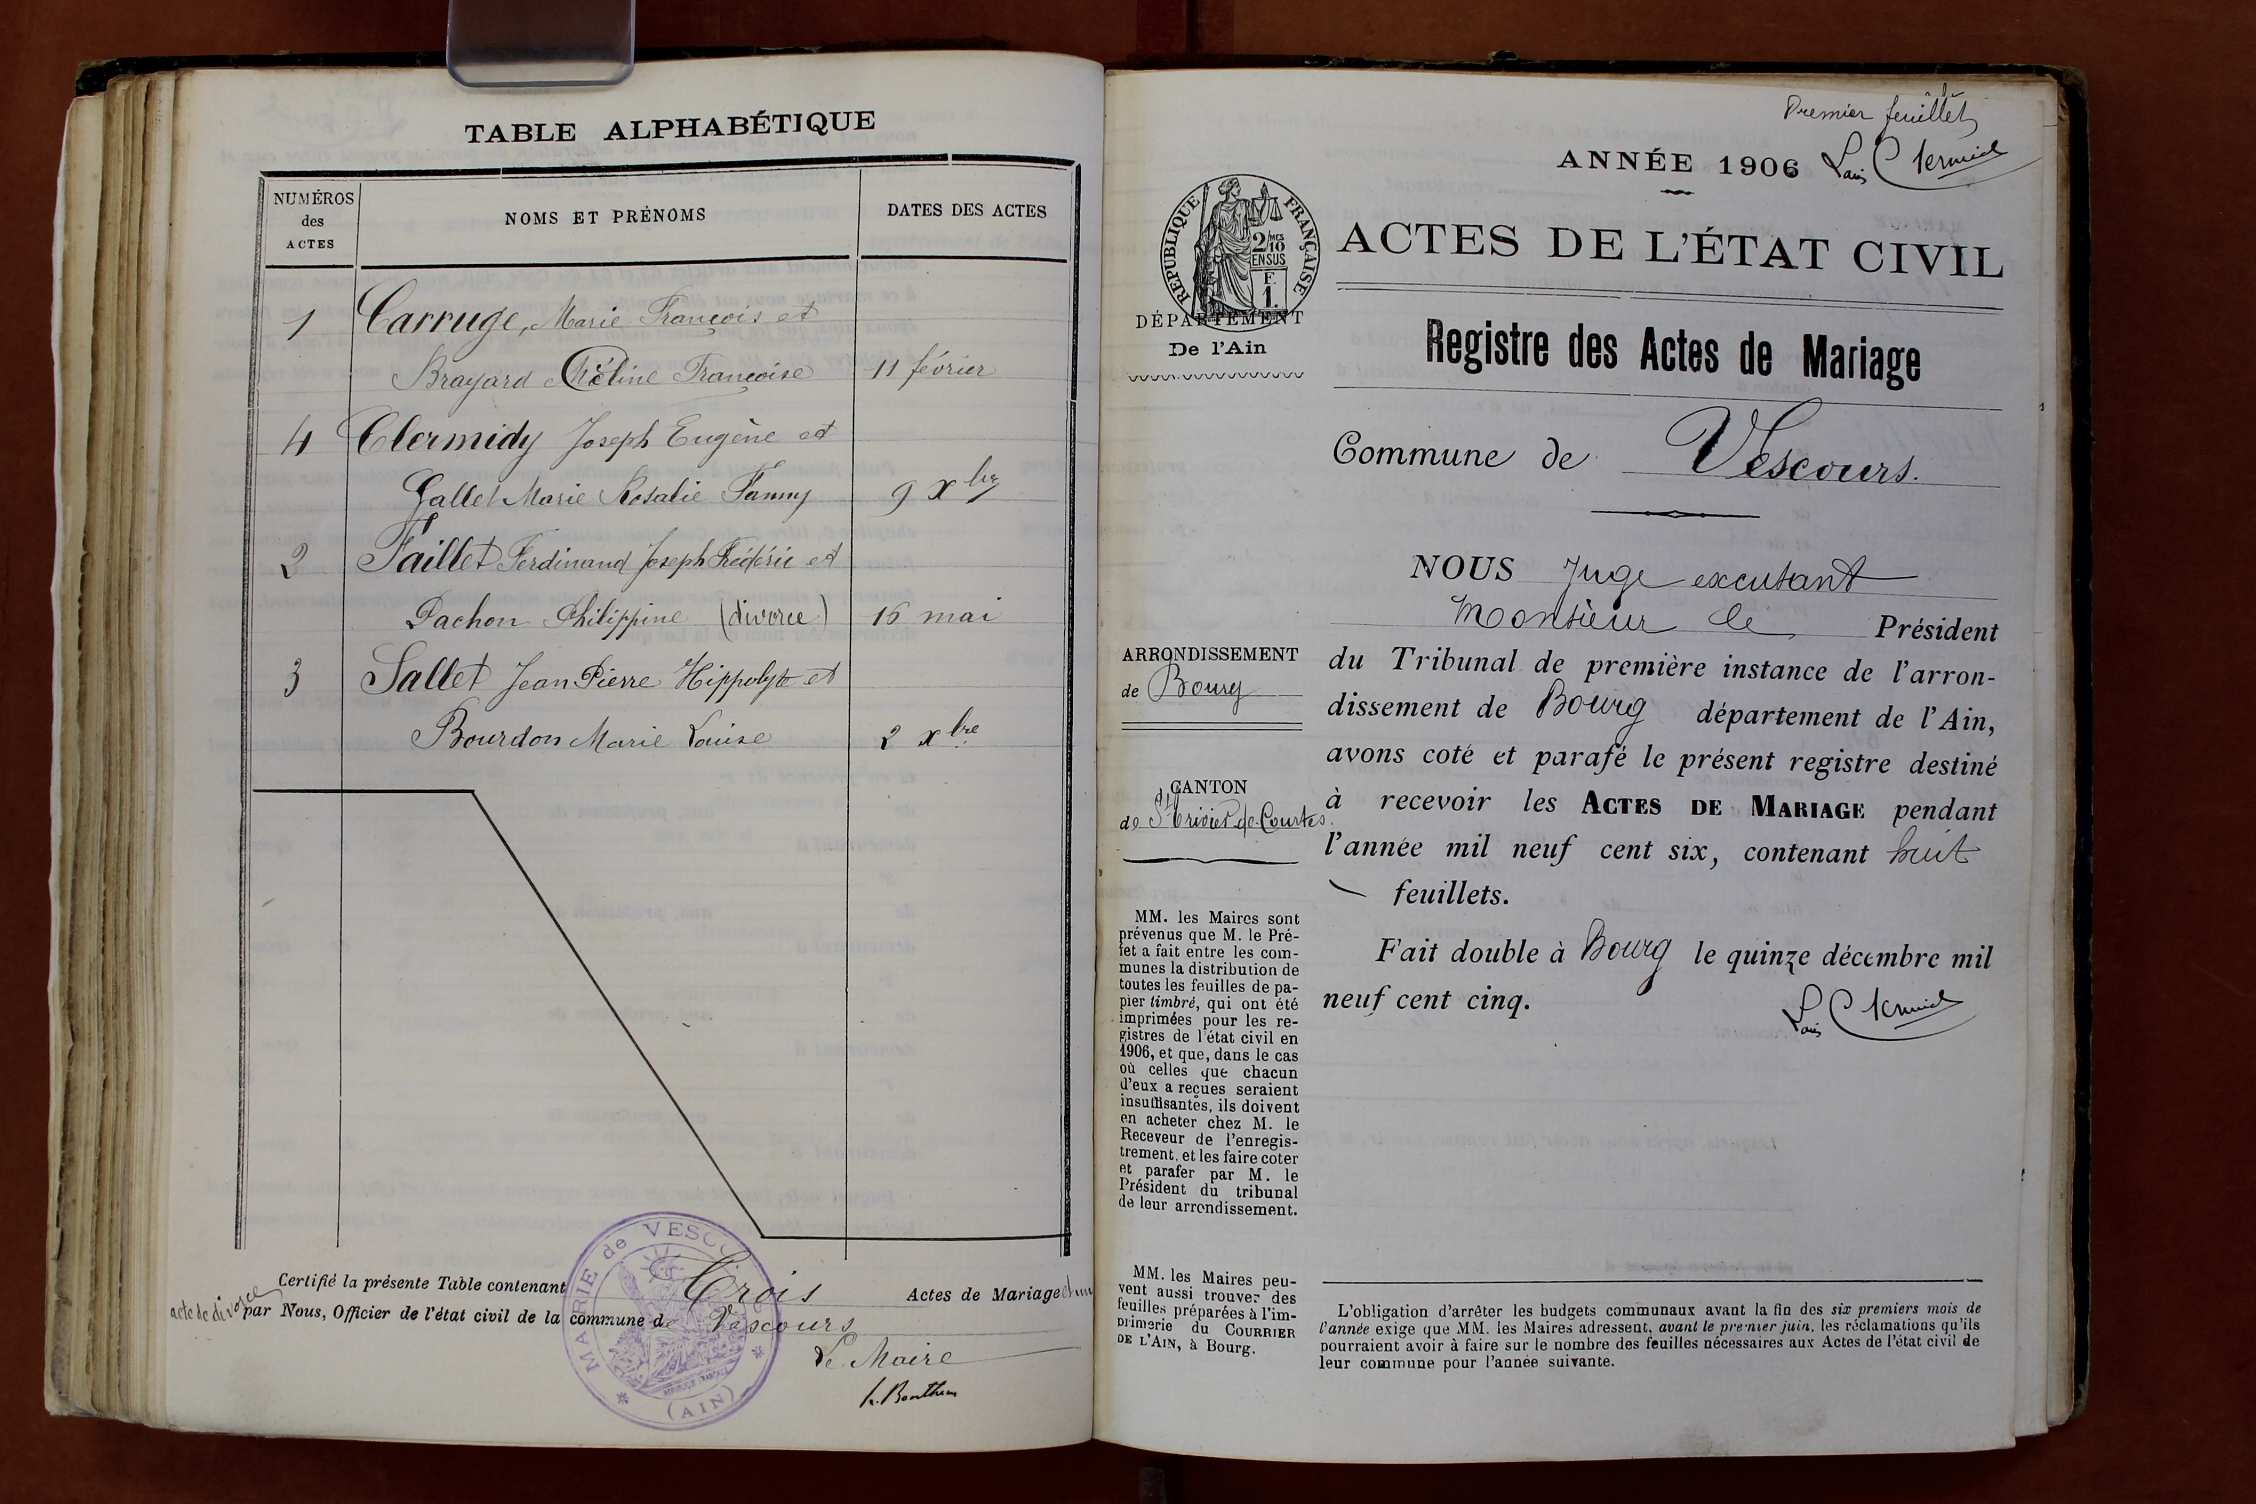 TABLE ALPHABÉTIQUE
NUMÉROS des ACTES
NOMS ET PRÉNOMS
DATES DES ACTES
1 Carruge, Marie François et
Brayard Méline Françoise 11 février
4 Clermidy Joseph Eugène et
Gallet Marie Rosalie Fanny 9 Xbre
2 Faillet Ferdinand Joseph Frédéric et
Pachon Philippine (divorce) 16 mai
3 Sallet Jean Pierre Hippolyte et
Bourdon Marie Louise 2 xbre
Certifié la présente Table contenant Trois Actes de Mariage et un
acte de divorce par Nous, Officier de l'état civil de la commune de Vescours
Le Maire
MAIRIE de VESCOURS
(AIN)
Premier feuillet
ANNÉE 1906
RÉPUBLIQUE FRANÇAISE
2/10 MES
EN SUS
F.
1.
ACTES DE L'ÉTAT CIVIL
DÉPARTEMENT
De l'Ain
Registre des Actes de Mariage
Commune de Vescours.
NOUS Juge
Monsieur le Président
du Tribunal de première instance de l'arron-
dissement de Bourg département de l'Ain,
avons coté et parafé le présent registre destiné
à recevoir les ACTES DE MARIAGE pendant
l'année mil neuf cent six, contenant huit
feuillets.
Fait double à Bourg le quinze décembre mil
neuf cent cinq.
ARRONDISSEMENT
de Bourg
CANTON
de St Trivier de Courtes.
MM. les Maires sont
prévenus que M. le Pré-
fet a fait entre les com-
munes la distribution de
toutes les feuilles de pa-
pier timbré, qui ont été
imprimées pour les re-
gistres de l'état civil en
1906, et que, dans le cas
où celles que chacun
d'eux a reçues seraient
insuffisantes, ils doivent
en acheter chez M. le
Receveur de l'enregis-
trement, et les faire coter
et parafer par M. le
Président du tribunal
de leur arrondissement.
MM. les Maires peu-
vent aussi trouver des
feuilles préparées à l'im-
primerie du COURRIER
DE L'AIN, à Bourg.
L'obligation d'arrêter les budgets communaux avant la fin des six premiers mois de
l'année exige que MM. les Maires adressent, avant le premier juin, les réclamations qu'ils
pourraient avoir à faire sur le nombre des feuilles nécessaires aux Actes de l'état civil de
leur commune pour l'année suivante.